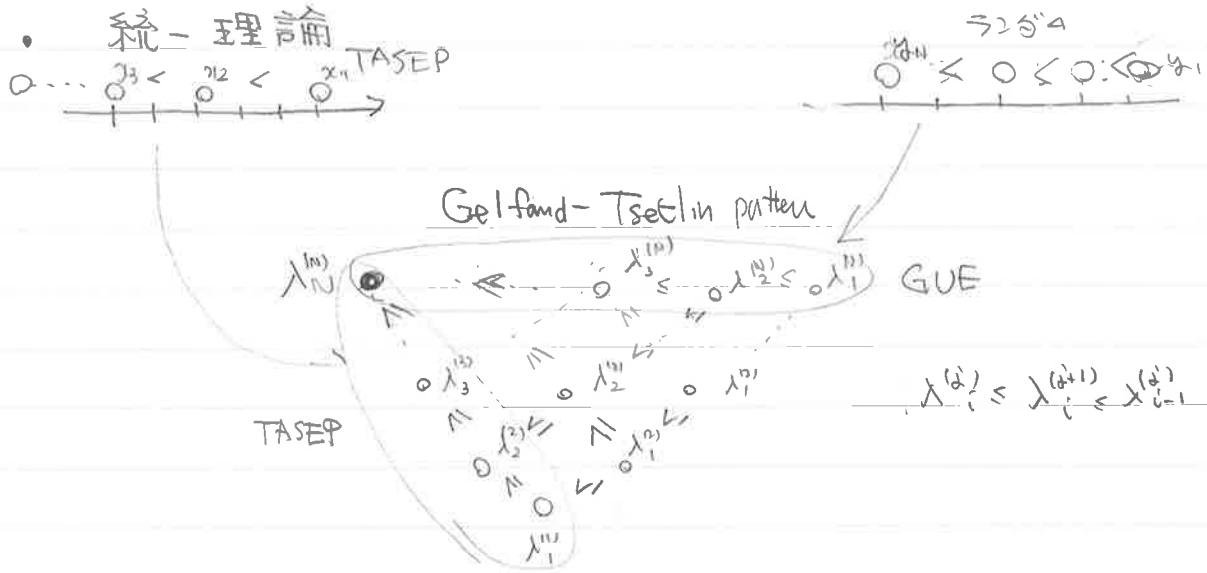 • 統一理論
TASEP
x₃ < x₂ < x₁
ランダム
y_N ≤ ≤ ≤ y₁
Gelfand-Tsetlin pattern
λ_N^(N) ≤ λ_3^(N) ≤ λ_2^(N) ≤ λ_1^(N) GUE
λ_3^(3) λ_2^(3) λ_1^(3)
λ_i^(j) ≤ λ_i^(j+1) ≤ λ_{i-1}^(j)
TASEP
λ_2^(2) λ_1^(2)
λ_1^(1)